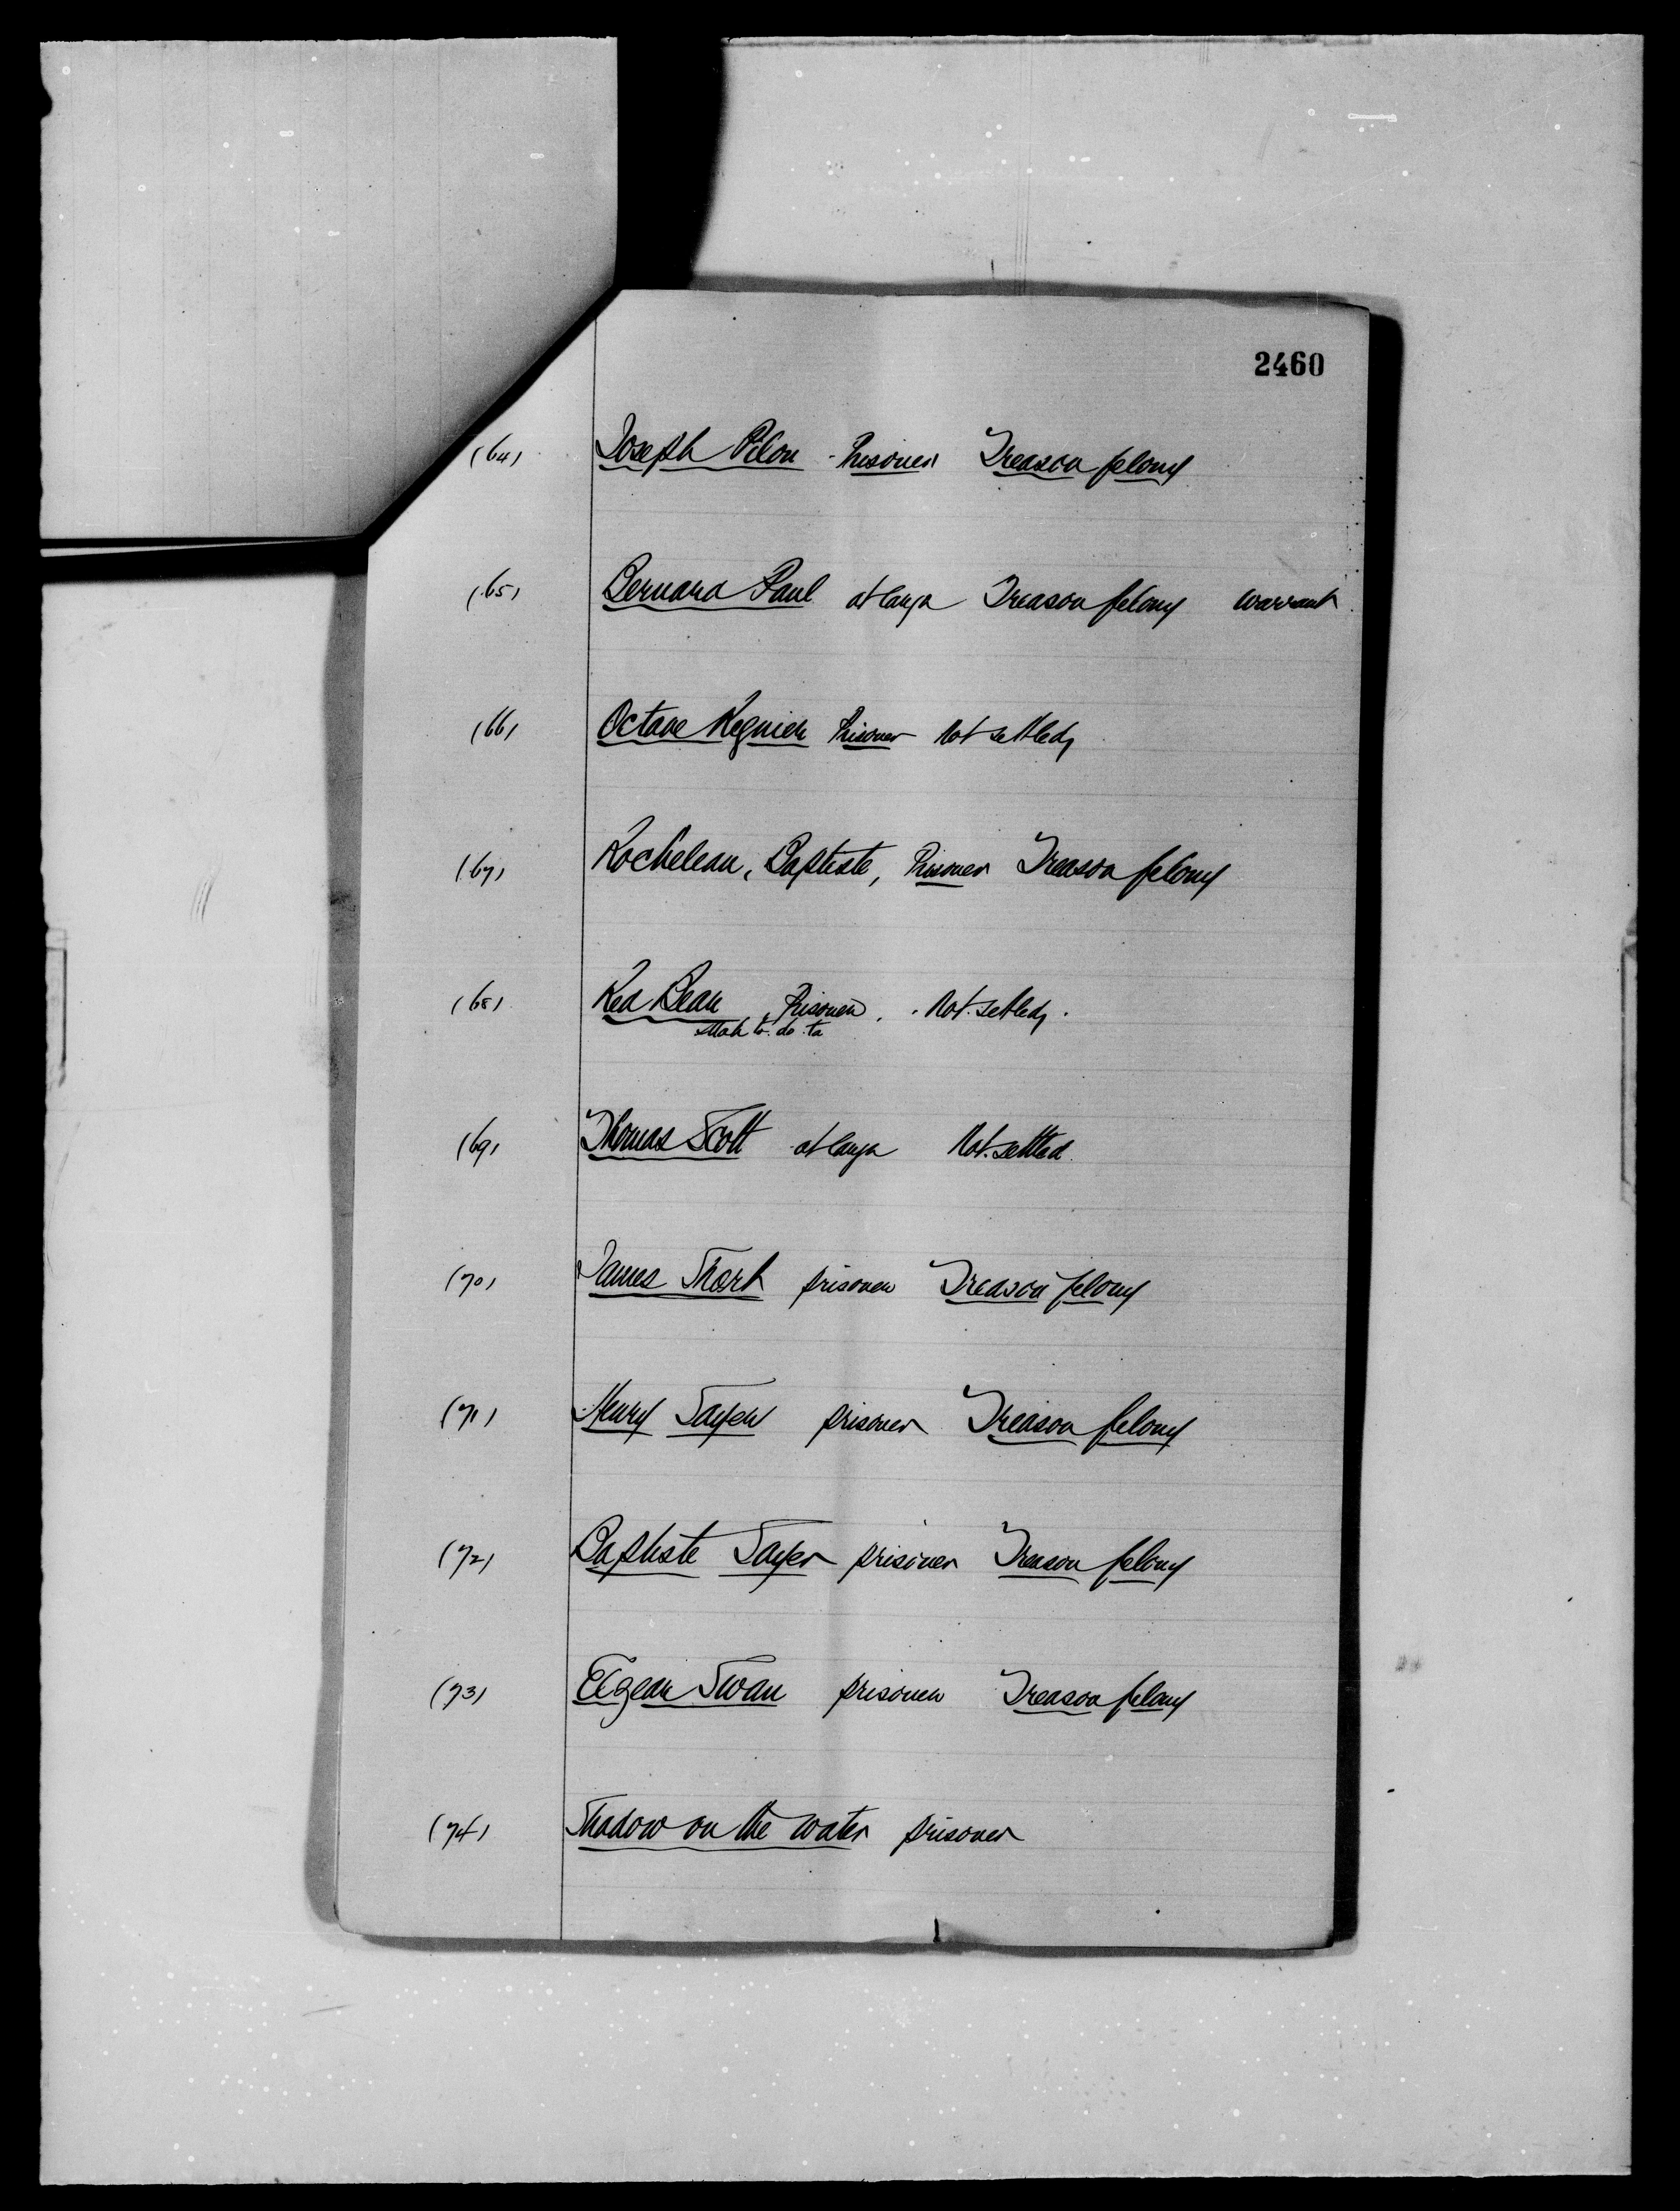 2460
(64) Joseph Pilon - Prisoner Treason felony
(65) Bernard Paul at large Treason felony warrant
(66) Octave Regnier Prisoner Not settled,
(67) Rocheleau, Baptiste, Prisoner Treason felony
(68) Red Bean, Prisoner. Not settled.
Mah to. do. ta
(69) Thomas Scott at large Not settled
(70) James Short prisoner Treason felony
(71) Henry Sayer prisoner Treason felony
(72) Baptiste Sayer prisoner Treason felony
(73) Elzear Swan prisoner Treason felony
(74) Shadow on the water prisoner